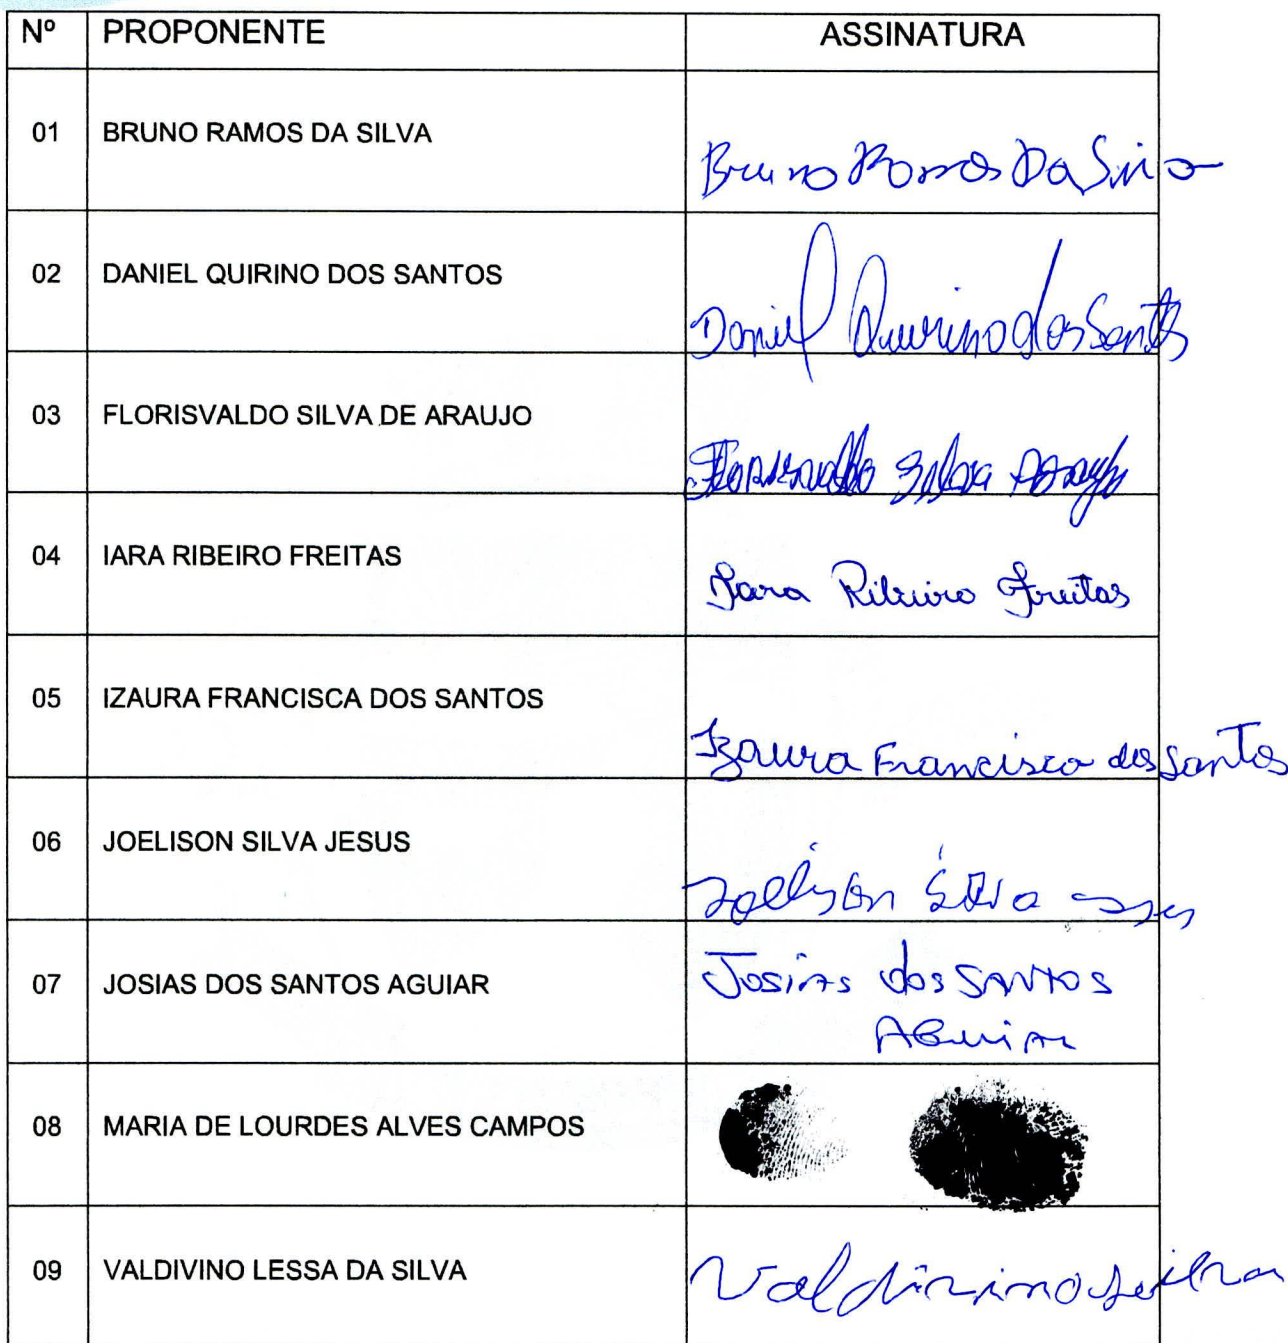 Nº PROPONENTE ASSINATURA
01 BRUNO RAMOS DA SILVA Bruno Ramos Da Silva
02 DANIEL QUIRINO DOS SANTOS Daniel Quirino dos Santos
03 FLORISVALDO SILVA DE ARAUJO Florisvaldo Silva Araujo
04 IARA RIBEIRO FREITAS Iara Ribeiro Freitas
05 IZAURA FRANCISCA DOS SANTOS Izaura Francisca dos Santos
06 JOELISON SILVA JESUS Joelyson Silva
07 JOSIAS DOS SANTOS AGUIAR Josias dos SANTOS
AGuiAr
08 MARIA DE LOURDES ALVES CAMPOS
09 VALDIVINO LESSA DA SILVA Valdivino